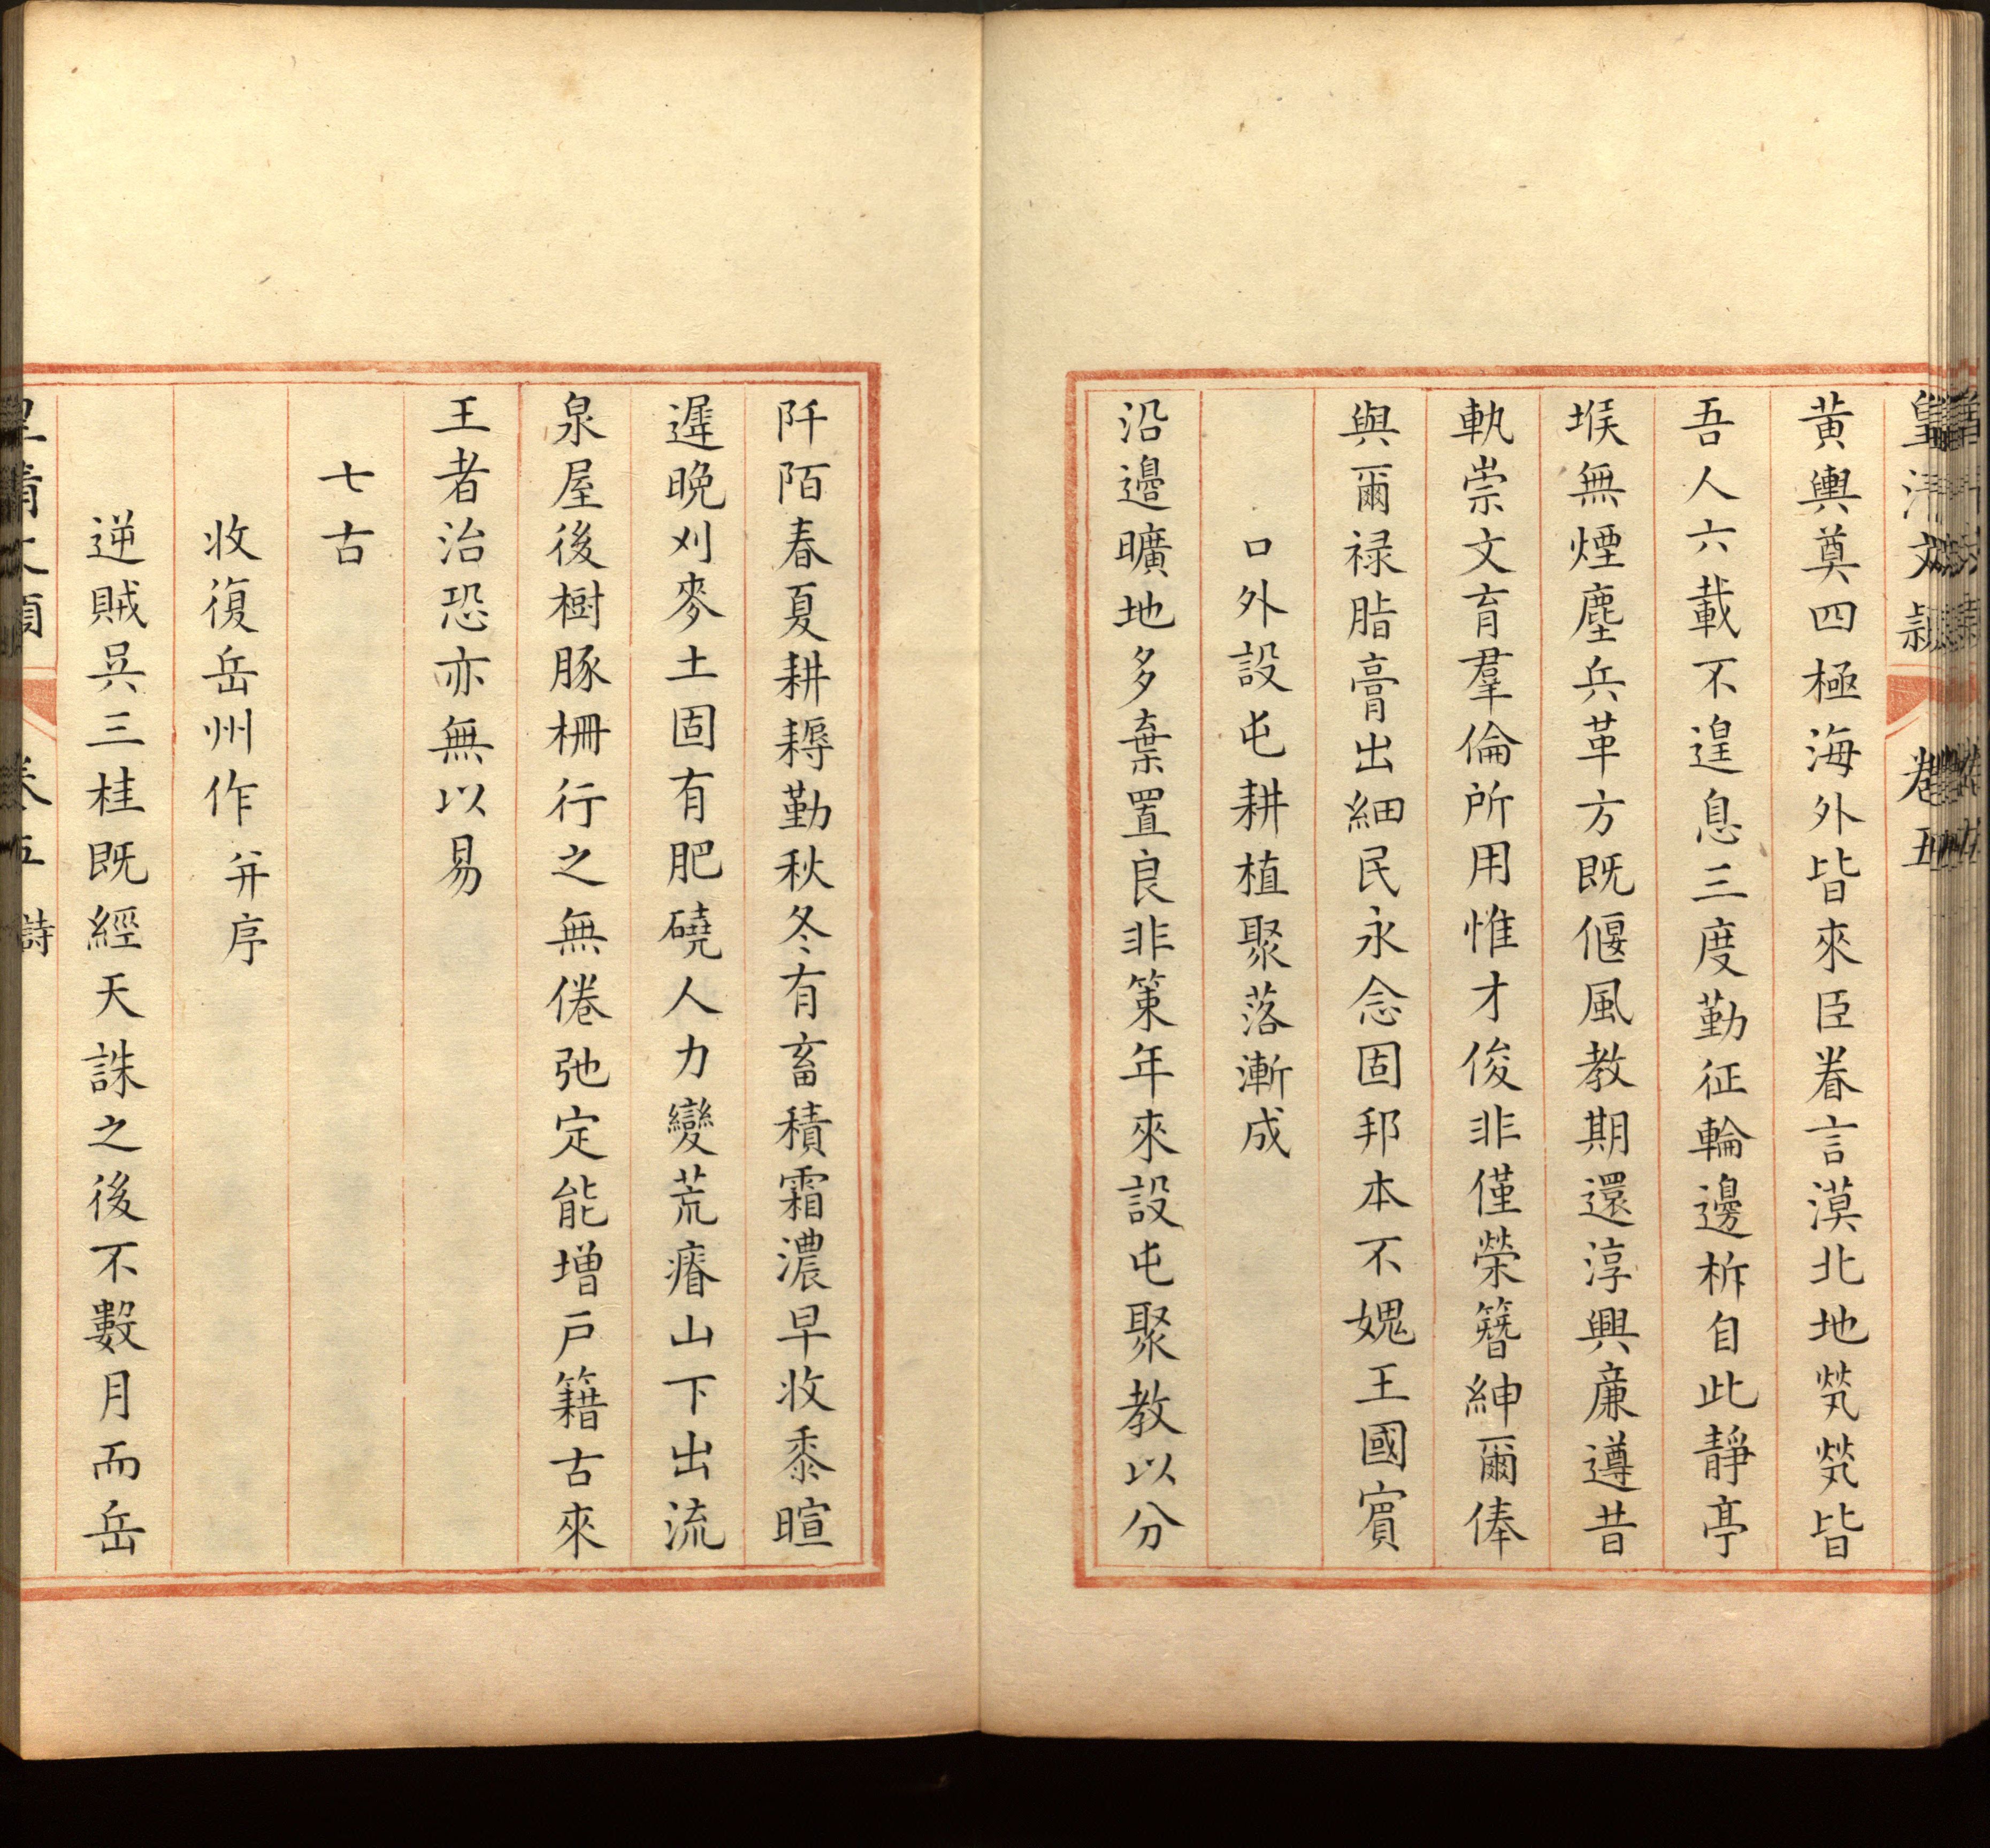 皇清文穎 卷五
黃輿奠四極海外皆來臣眷言漠北地煢煢皆
吾人六載不遑息三度勤征輪邊柝自此靜亭
堠無煙塵兵革方既偃風教期還淳興廉遵昔
軌崇文育羣倫所用惟才俊非僅榮簪紳爾俸
與爾祿脂膏出細民永念固邦本不媿王國賓
口外設屯耕植聚落漸成
沿邊曠地多棄置良非策年來設屯聚教以分
阡陌春夏耕耨勤秋冬有畜積霜濃早收黍暄
遲晚刈麥土固有肥磽人力變荒瘠山下出流
泉屋後樹豚柵行之無倦弛定能增戶籍古來
王者治恐亦無以易
七古
收復岳州作并序
逆賊吳三桂既經天誅之後不數月而岳
皇清文穎 卷五 詩